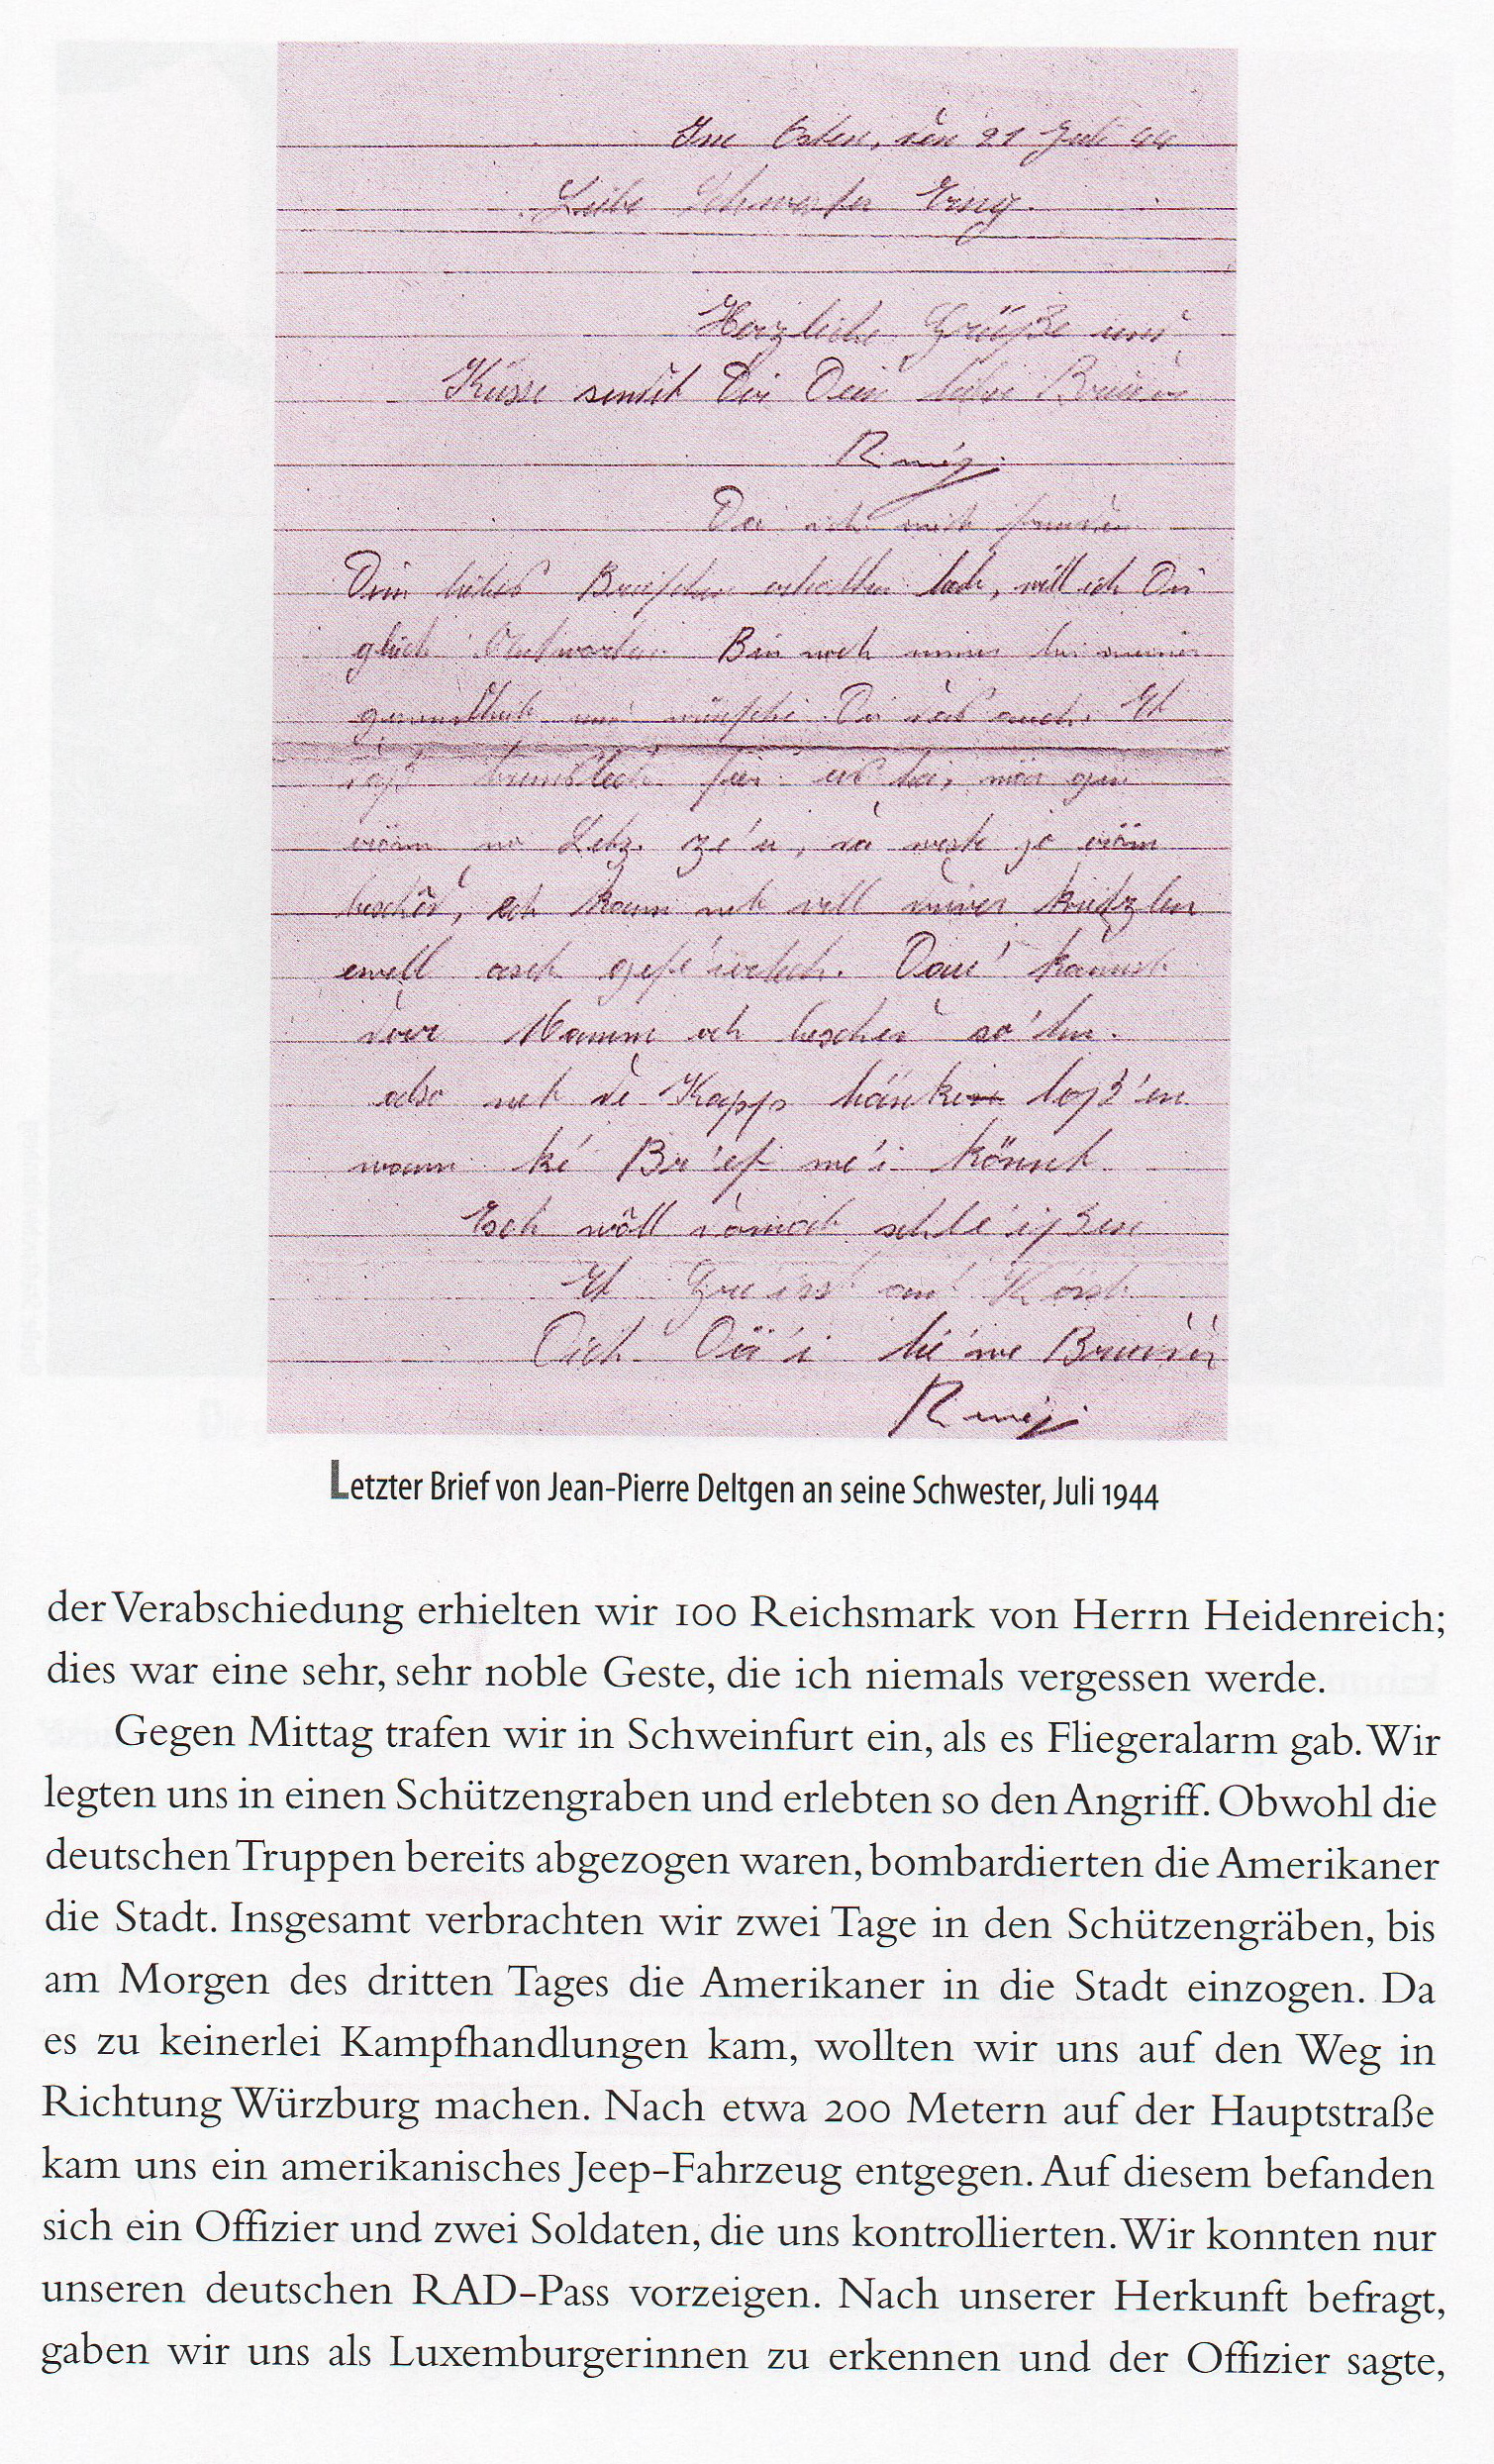 Im Osten, den 21 Juli 44
Liebe Schwester Erny.
Herzliche Grüße und
Küsse sendet Dir Dein lieber Bruder
Da ich mit freuden
Dein liebes Briefchen erhalten hab, will ich Dir
gleich Antworten. Bin noch immer bei meiner
gesundheit und wünsche Dir das auch. Et
fir eis hei, mär gin
no Letz. ze'n, da weste je
besched, ech kann net vill driwer kritzlen
well asch gefe'irlech. Daue' kannst
der Mamm och bescheed so'en.
also net de Kapp hänken loßen
wann ké Bre'ef me'i könnt
Ech wöll domadt schle'ißen
Et Greisst and Këst
Dich Däi léiwe Brudder
Letzter Brief von Jean-Pierre Deltgen an seine Schwester, Juli 1944
der Verabschiedung erhielten wir 100 Reichsmark von Herrn Heidenreich;
dies war eine sehr, sehr noble Geste, die ich niemals vergessen werde.
Gegen Mittag trafen wir in Schweinfurt ein, als es Fliegeralarm gab. Wir
legten uns in einen Schützengraben und erlebten so den Angriff. Obwohl die
deutschen Truppen bereits abgezogen waren, bombardierten die Amerikaner
die Stadt. Insgesamt verbrachten wir zwei Tage in den Schützengräben, bis
am Morgen des dritten Tages die Amerikaner in die Stadt einzogen. Da
es zu keinerlei Kampfhandlungen kam, wollten wir uns auf den Weg in
Richtung Würzburg machen. Nach etwa 200 Metern auf der Hauptstraße
kam uns ein amerikanisches Jeep-Fahrzeug entgegen. Auf diesem befanden
sich ein Offizier und zwei Soldaten, die uns kontrollierten. Wir konnten nur
unseren deutschen RAD-Pass vorzeigen. Nach unserer Herkunft befragt,
gaben wir uns als Luxemburgerinnen zu erkennen und der Offizier sagte,